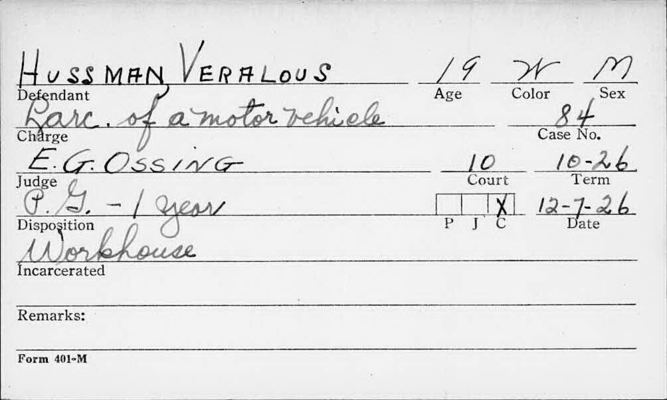 HUSSMAN, VERALOUS 19 W M
Defendant Age Color Sex
Larc. of a motor vehicle 84
Charge Case No.
E. G. OSSING 10 10-26
Judge Court Term
P. G. - 1 year X 12-7-26
Disposition P J C Date
Workhouse
Incarcerated
Remarks:
Form 401-M